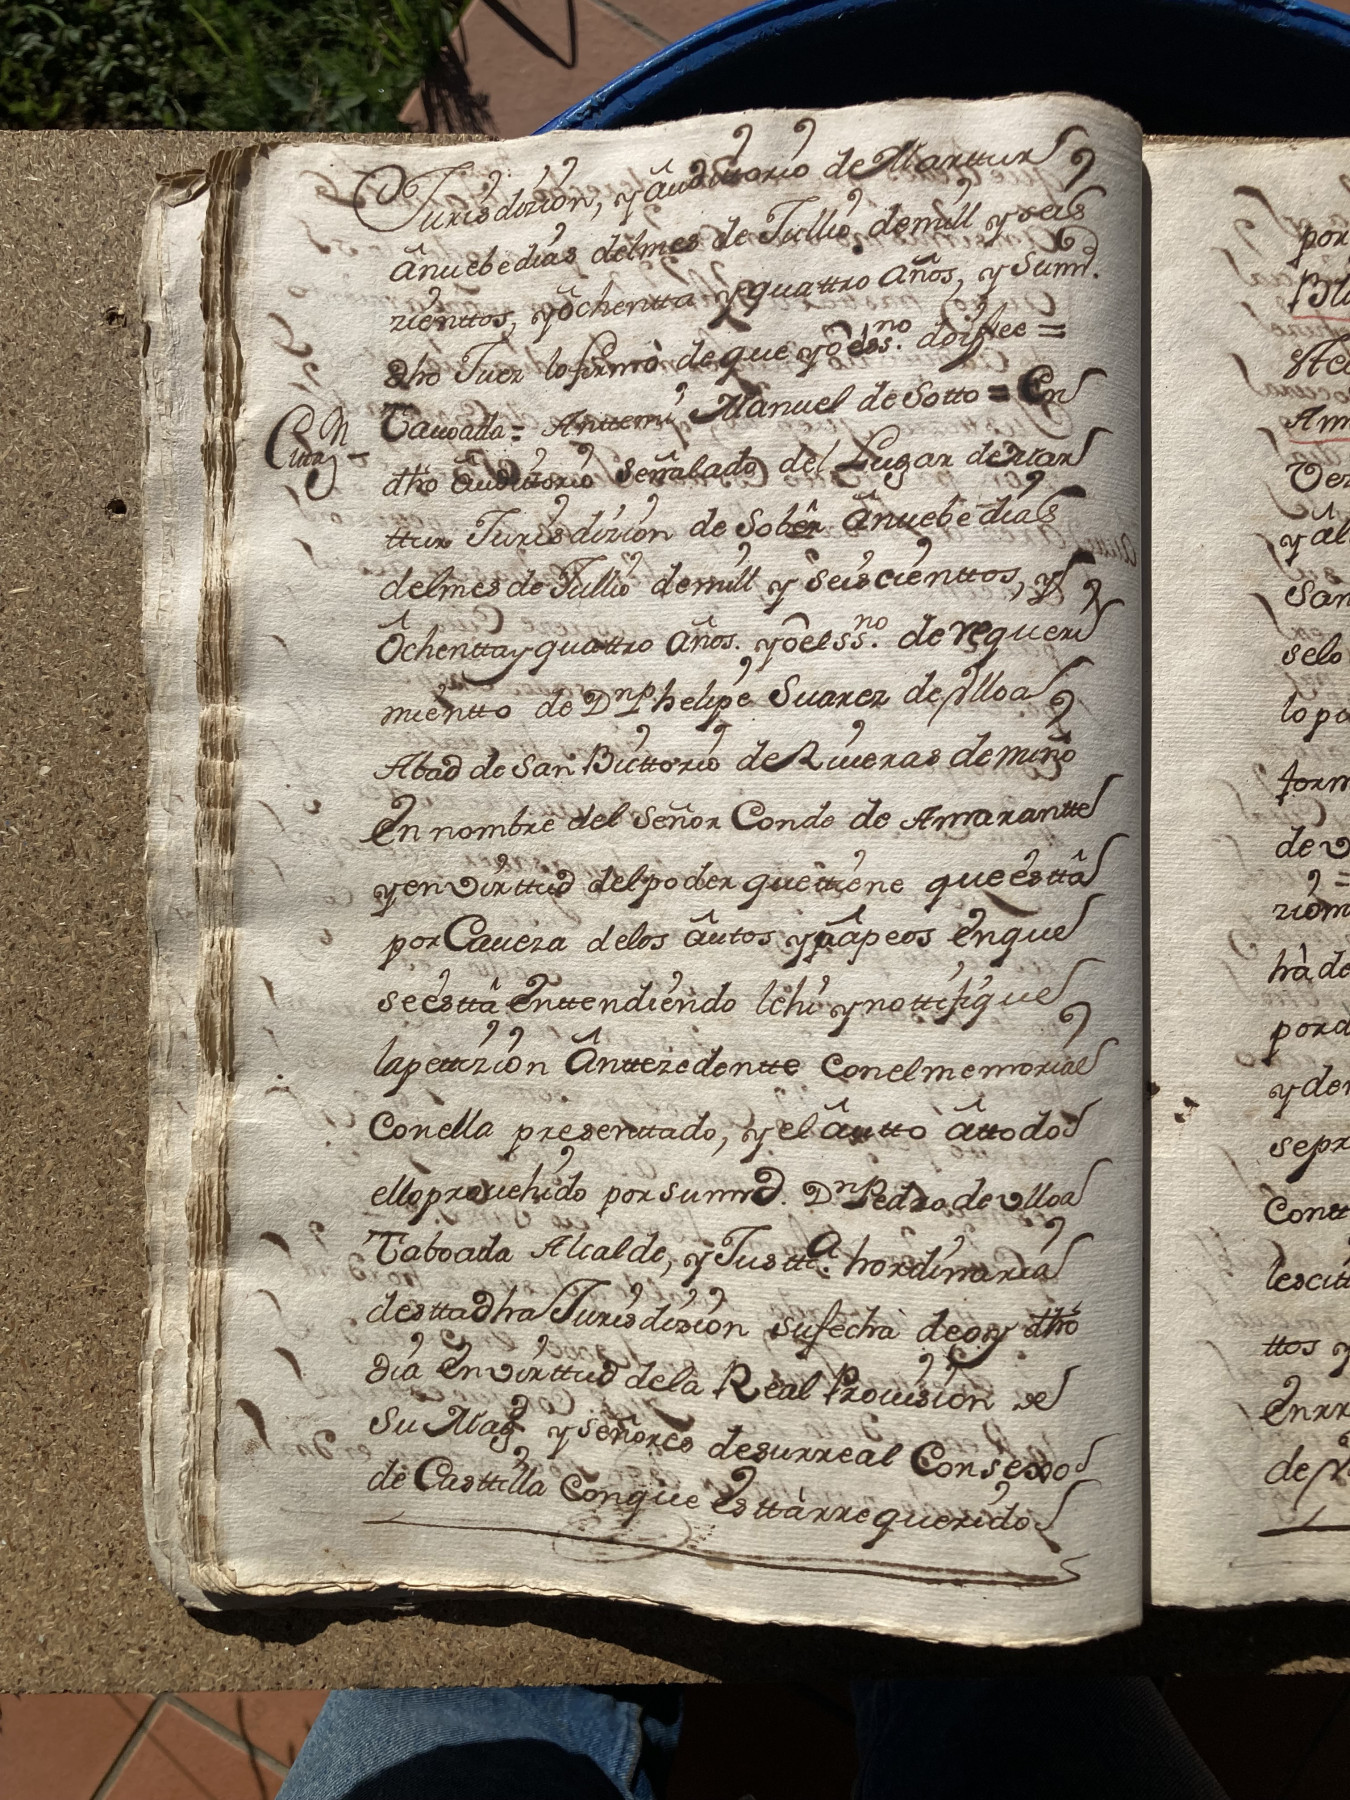 Jurisdizion, y âuditorio de Marttur
ânuebe dias delmes de Jullio, demill y seis
zienttos, yôchentta yquattro años, y Sumd.
dho Juez lo firmò de que yô ess.no doi fee =
Tauoada = Anttemi Manuel de Sotto = En
Citaz.n
dho âudittorio señalado del Lugar de Mar
ttur Jurisdizion de Sobêr ânuebe dias
delmes de Jullio demill y seiscienttos, y
ôchenttayquattro años. yô elss.no de requeri
mientto de Dn Phelipe Suarez de Ulloa
Abad de San Bittorio de Riueras de miño
En nombre del Señor Conde de Amarantte
yenvirttud delpoder quettiene que esttâ
por Caueza delos âutos yâpeos Enque
se esttâ Enttendiendo lehi ynottifique
lapetizion Ânttezedentte Conelmemorial
Conella presenttado, y el âutto âttodo
elloprouehido por summd. Dn Pedro de Ulloa
Taboada Alcalde, y Justta. hordinaria
desttadha Jurisdizion sufecha deoy dho
dia Envirttud dela Real Prouision de
Su Magd y señores desurreal Consexo
de Casttilla Conque esttàrrequerido
por
Ve
y al
San
selo
lo po
form
de v
zion
hà de
por d
y de
sepr
Contt
lescit
ttos y
Enrr